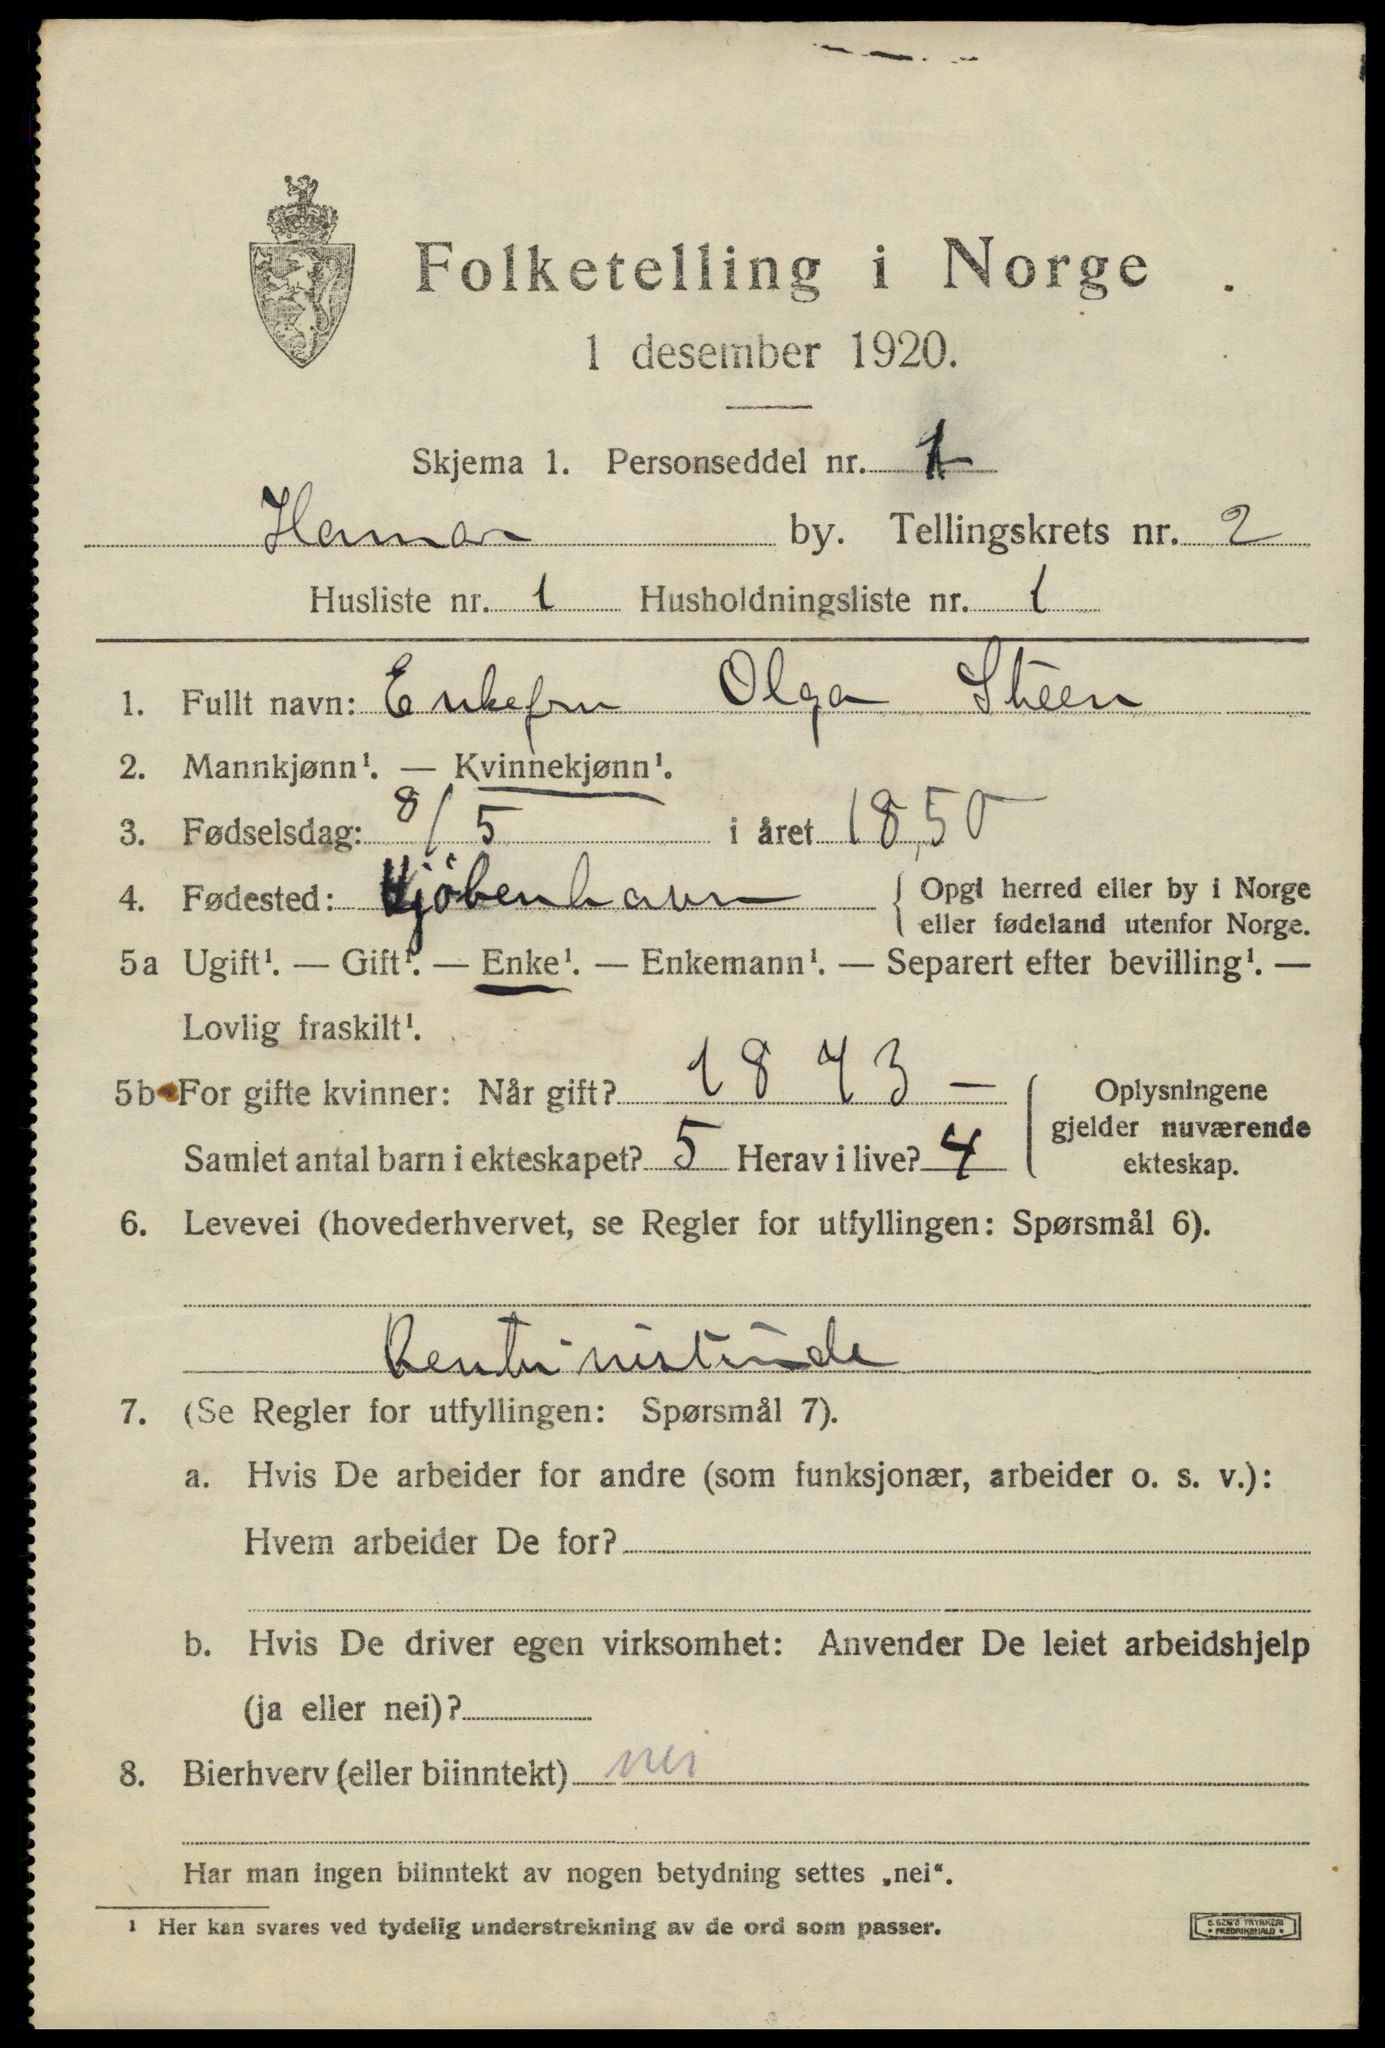 Folketelling i Norge
1 desember 1920.
Skjema 1. Personseddel nr. 1
Hamar by. Tellingskrets nr. 2
Husliste nr. 1 Husholdningsliste nr. 1
1. Fullt navn: Enkefru Olga Steen
2. Mannkjønn¹. — Kvinnekjønn¹.
3. Fødselsdag: 8/5 i året 1850
4. Fødested: Kjöbenhavn { Opgi herred eller by i Norge
eller fødeland utenfor Norge.
5a Ugift¹. — Gift¹. — Enke¹. — Enkemann¹. — Separert efter bevilling¹. —
Lovlig fraskilt¹.
5b For gifte kvinner: Når gift? 1873 —
Samlet antal barn i ekteskapet? 5 Herav i live? 4
Oplysningene
gjelder nuværende
ekteskap.
6. Levevei (hovederhvervet, se Regler for utfyllingen: Spørsmål 6).
7. (Se Regler for utfyllingen: Spørsmål 7).
a. Hvis De arbeider for andre (som funksjonær, arbeider o. s. v.):
Hvem arbeider De for?
b. Hvis De driver egen virksomhet: Anvender De leiet arbeidshjelp
(ja eller nei)?
8. Bierhverv (eller biinntekt) nei
Har man ingen biinntekt av nogen betydning settes „nei“.
¹ Her kan svares ved tydelig understrekning av de ord som passer.